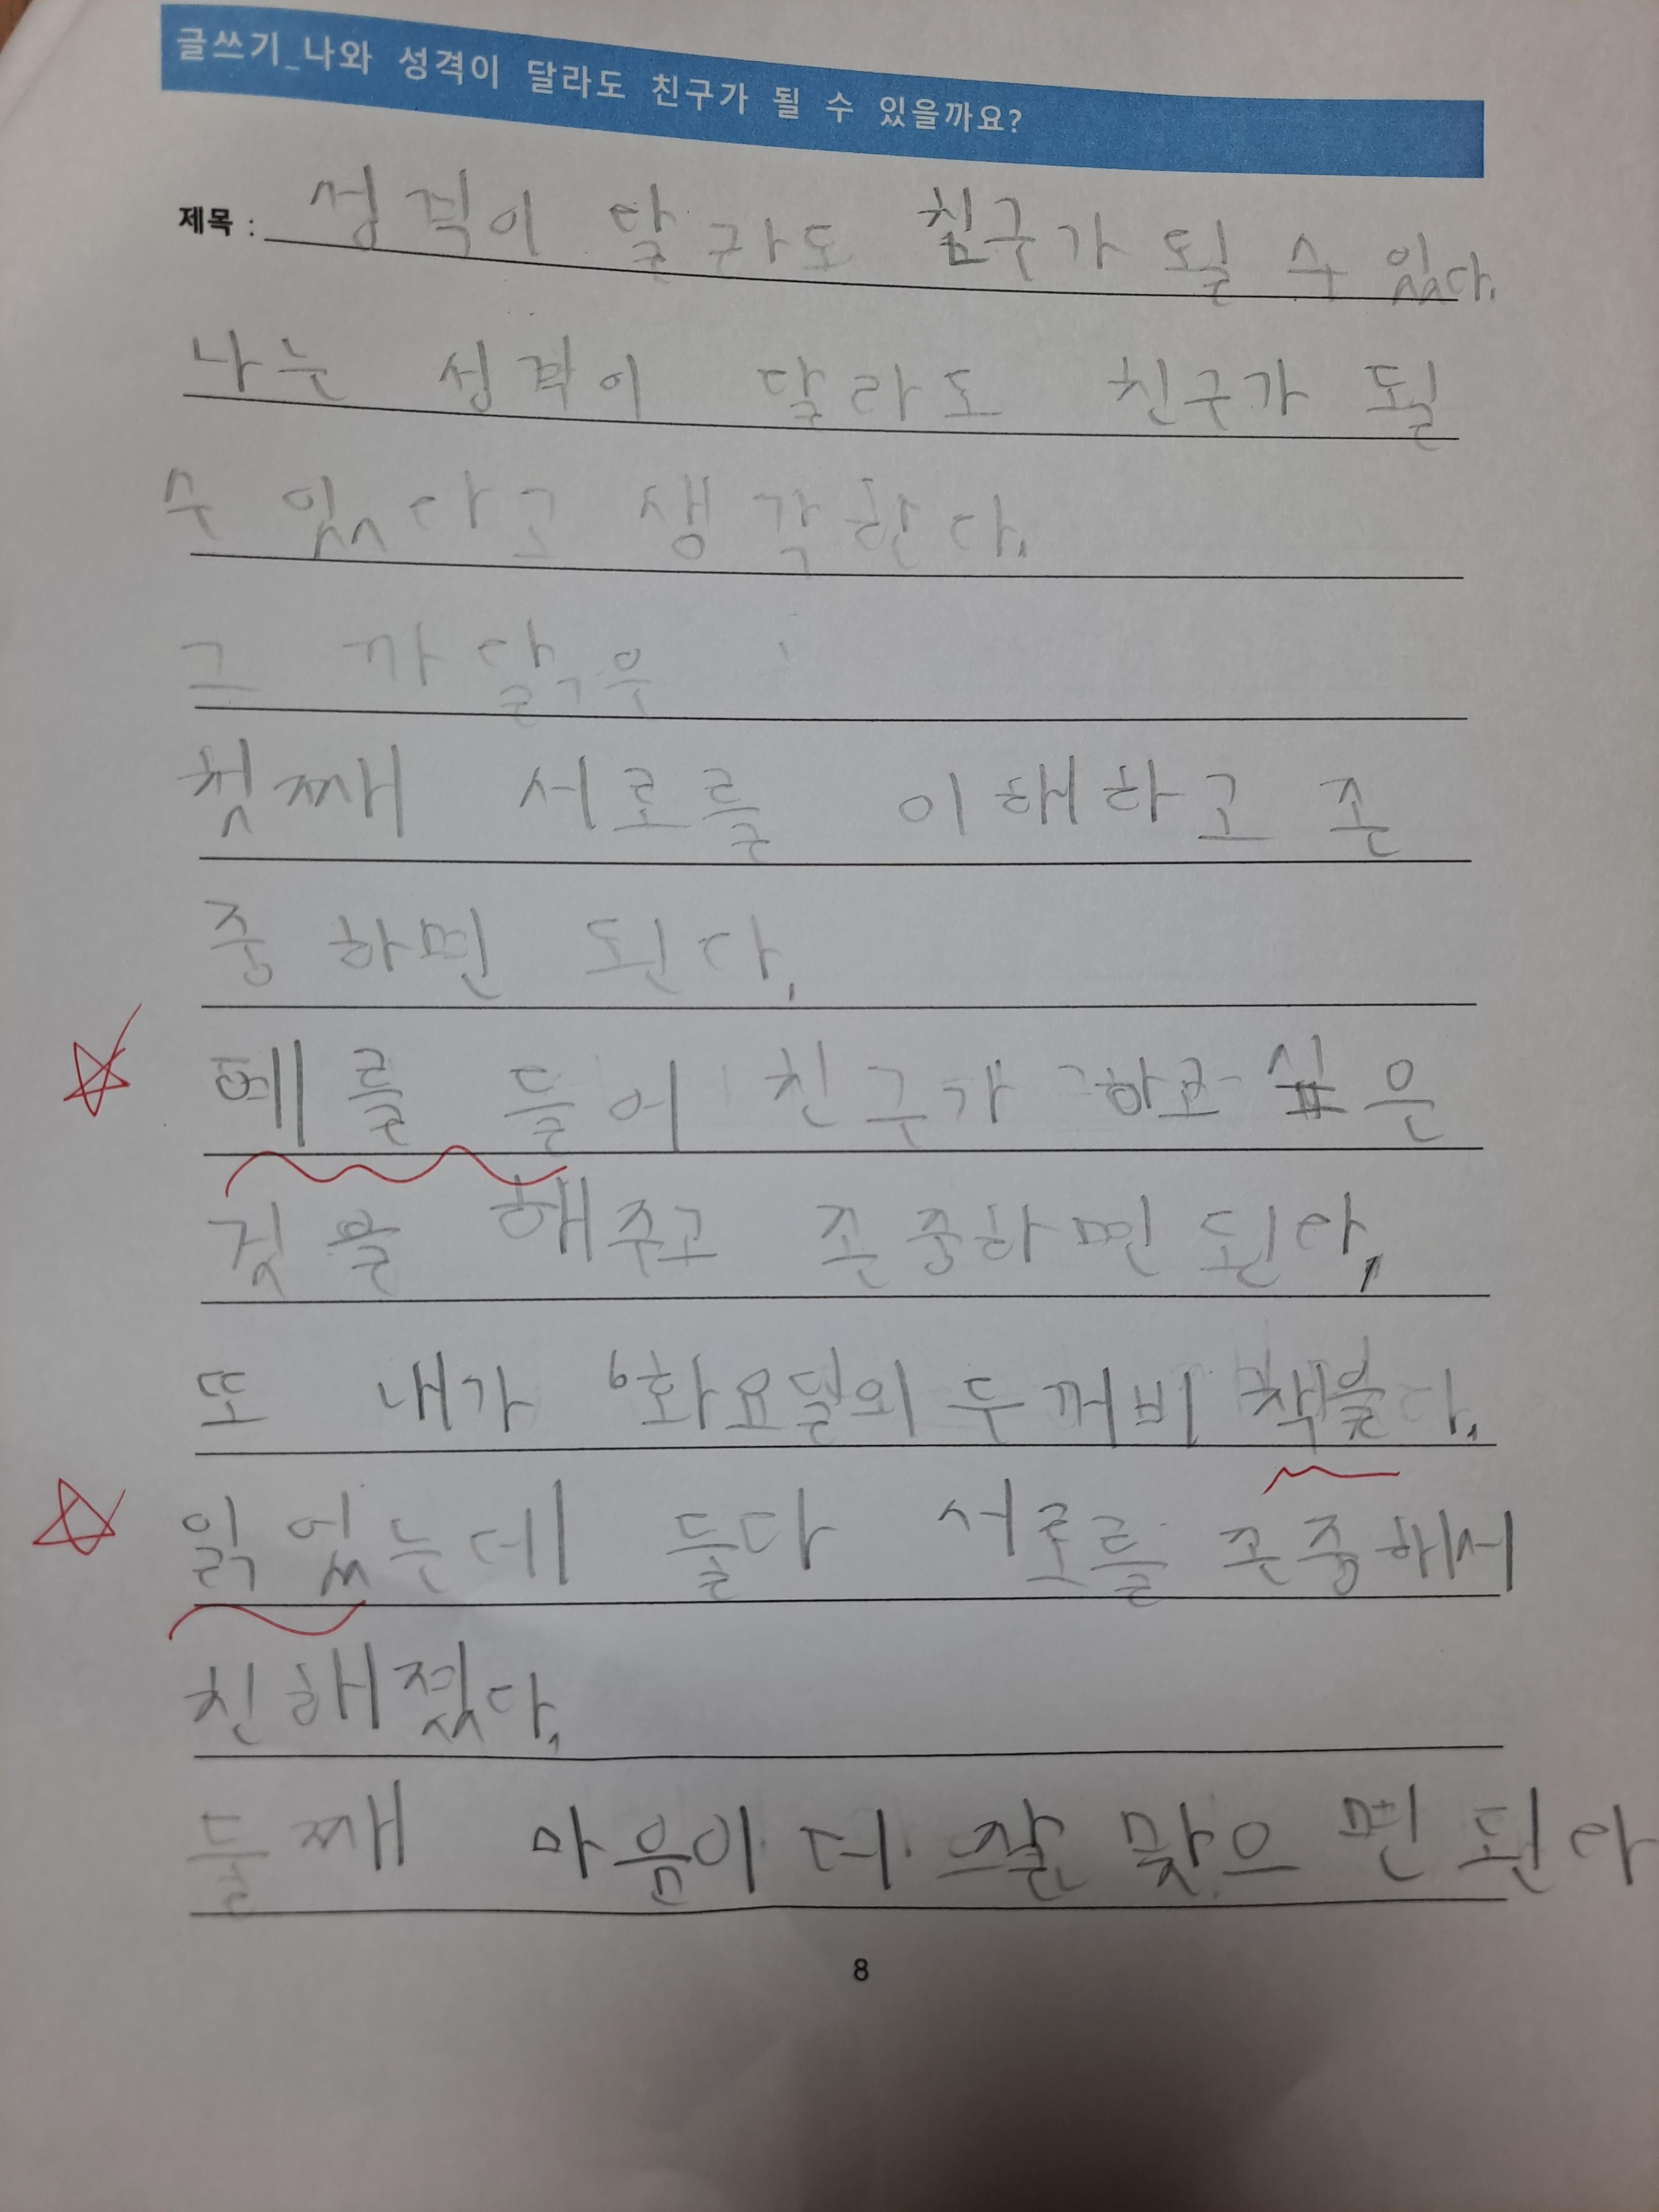 글쓰기_나와 성격이 달라도 친구가 될 수 있을까요?
제목 : 성격이 달라도 친구가 될 수 있다.
나는 성격이 달라도 친구가 될
수 있다고 생각한다.
그 까닭은
첫째 서로를 이해하고 존
중하면 된다.
예를 들어 친구가 하고 싶은
것을 해주고 존중하면 된다.
또 내가 '화요일의 두꺼비 책을다.
읽었는데 둘다 서로를 존중해서
친해졌다.
둘째 마음이 더 잘 맞으면 된다
8